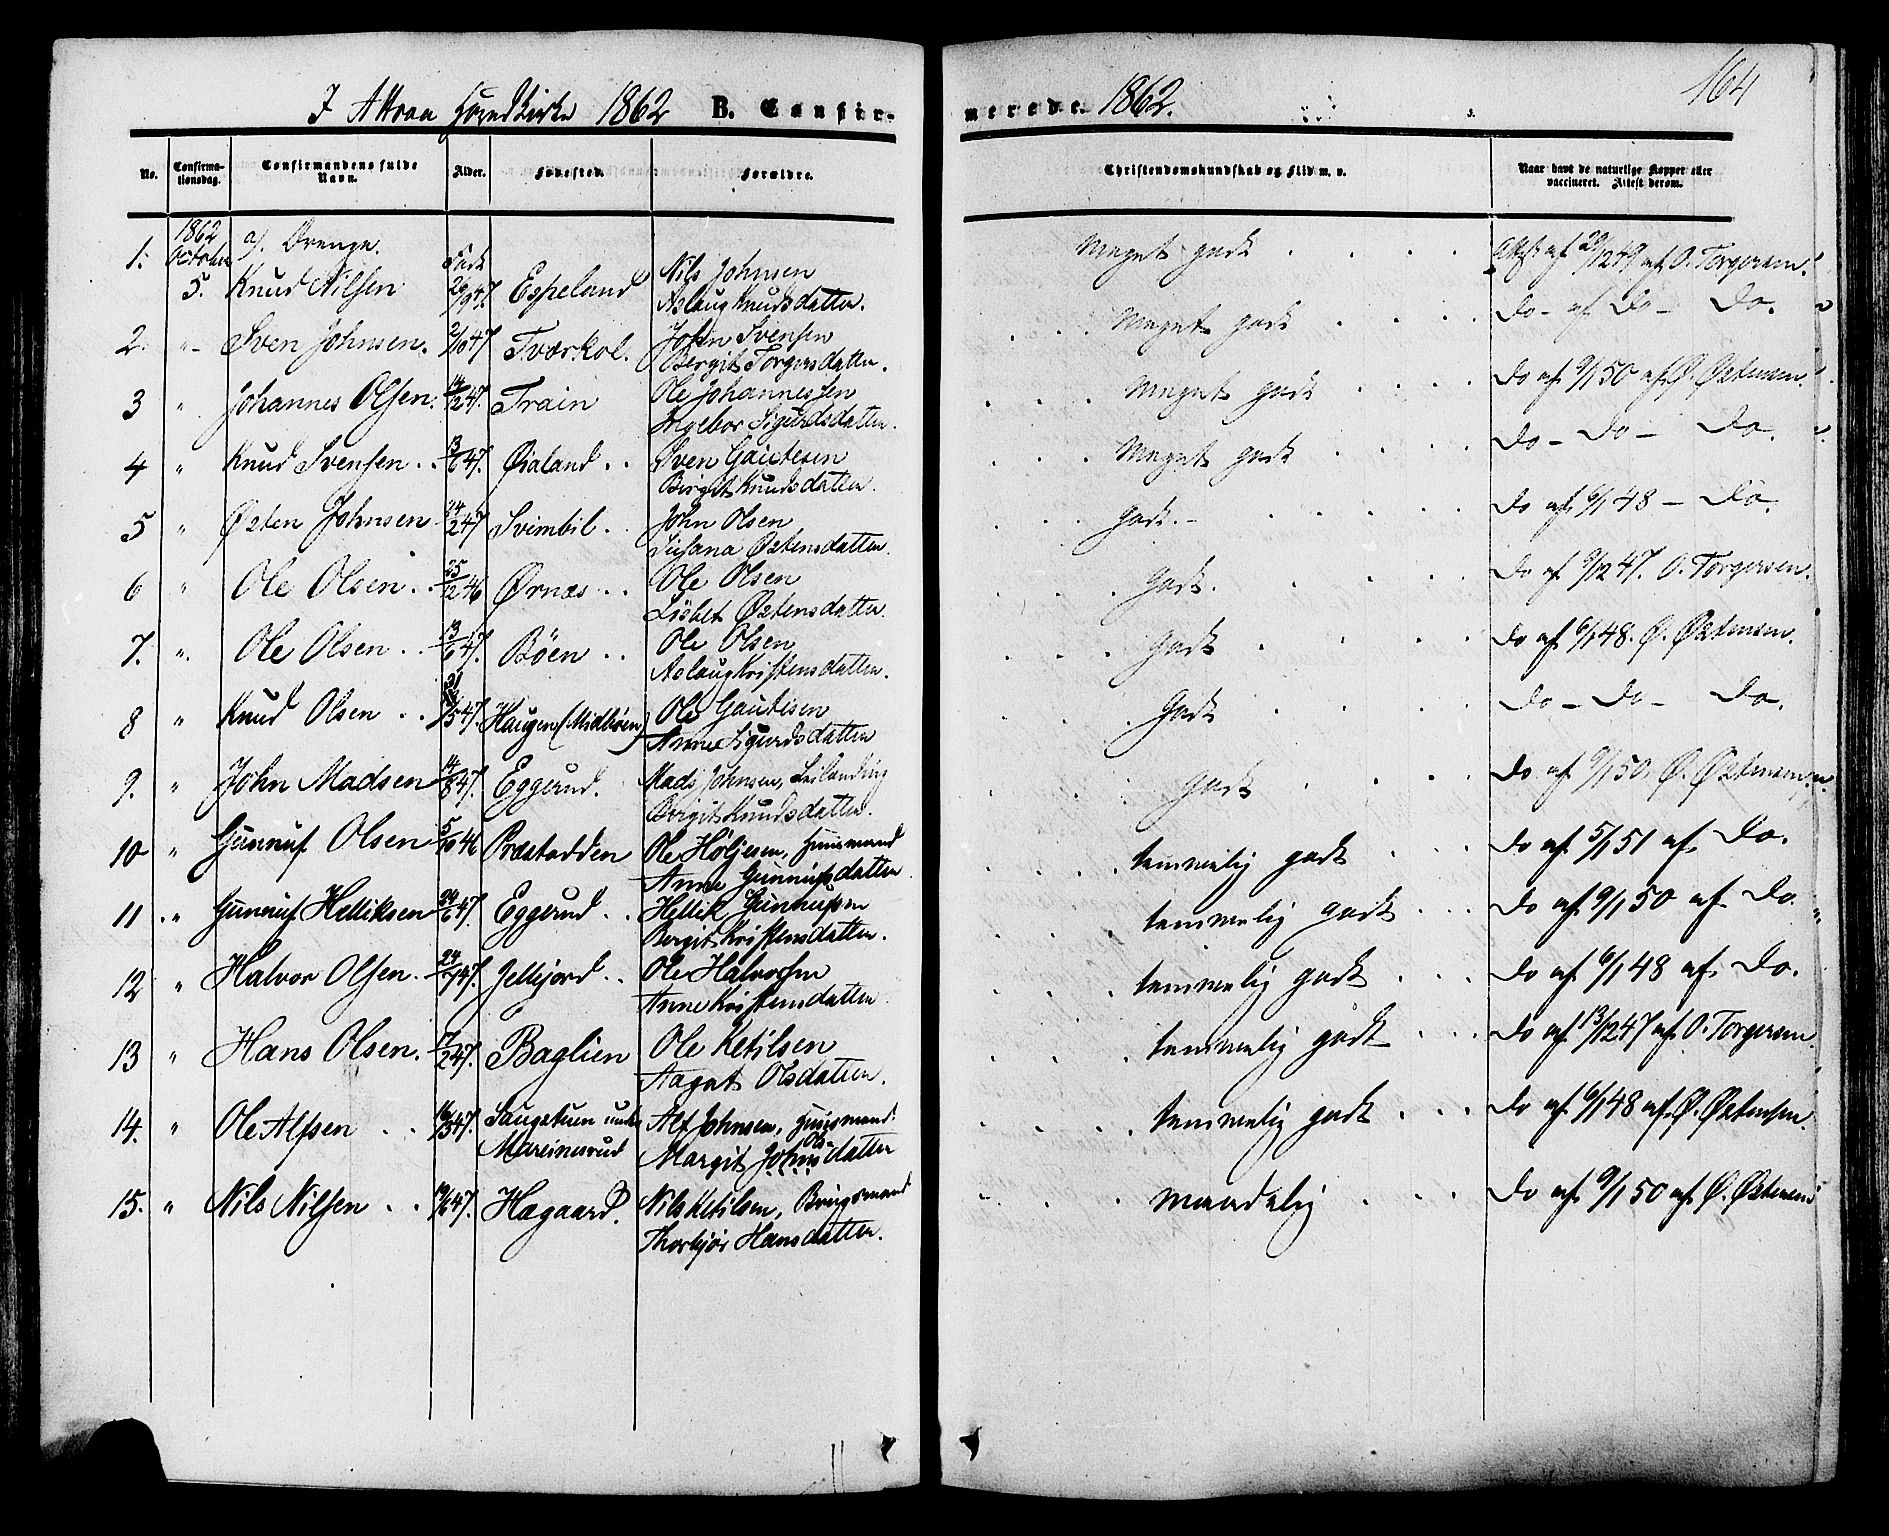 I Attraa Hovedkirke 1862 B. Confir-
merede. 1862.
164
No. Confirma-tionsdag. Confirmandens fulde Navn. Alder. Fødested. Forældre.
Christendomskundskab og Flid m. v. Naar havt de naturlige Kopper eller vaccineret. Attest derom.
1862 a). Drenge.
1. October Født Nils Johnsen Meget godt Attest af 29/12 49 af O. Torgersen.
5. Knud Nilsen 20/9 47. Espeland Aslaug Knudsdatter.
2. " Sven Johnsen. 2/10 47 Tværkol. John Svensen Meget godt Do - af Do - Do.
Bergit Torgersdatter.
3 " Johannes Olsen. 14/12 47. Train Ole Johannessen Meget godt Do af 9/1 50 af Ø. Østensen.
Ingebor Sigurdsdatter.
4 " Knud Svensen 13/6 47. Øialand Sven Gautesen Meget godt Do - Do - Do.
Birgit Knudsdatter.
5 " Østen Johnsen 24/2 47 Svimbil John Olsen godt. Do af 6/1 48 - Do.
Susana Østensdatter.
6 " Ole Olsen 25/12 46 Ørnæs Ole Olsen Godt. Do af 9/12 47. O. Torgersen.
Lisbet Østensdatter.
7. " Ole Olsen 13/6 47. Böen Ole Olsen Godt Do af 6/1 48. Ø. Østensen.
Aslaug Kristensdatter.
8 " Knud Olsen /5 47. Haugen (Midböen) Ole Gautesen Godt Do - Do - Do.
Anne Sigurdsdatter
9. " John Madsen 14/8 47. Eggerud. Mads Johnsen, Leilænding godt Do af 9/1 50. Ø. Østensen.
Birgit Knudsdatter.
10 " Gunnuf Olsen 5/10 46 Præstodden Ole Höljesen, Huusmand temmelig godt Do af 5/1 51 af Do.
Anne Gunnufsdatter
11 " Gunnuf Helliksen 29/6 47. Eggerud Hellik Gunnufsen temmelig godt Do af 9/1 50 af Do.
Bergit Kristensdatter.
12 " Halvor Olsen 24/7 47. Jellejord Ole Halvorsen temmelig godt Do af 6/1 48 af Do.
Anne Kristensdatter
13 " Hans Olsen. 17/2 47. Baglien Ole Ketilsen temmelig godt Do af 13/12 47 af O. Torgersen.
Aagat Olsdatter.
14. " Ole Alfsen 16/3 47. Saugetuen under Alf Johnsen, Huusmand. temmelig godt Do af 6/1 48 af Ø. Østensen.
Mareinesrud Margit Johnsdatter Ols
15. " Nils Nilsen 19/6 47. Hægaard. Nils Ketilsen, Brugsmand maadelig Do af 9/1 50 af Ø. Østensen
Thorbjör Hansdatter.